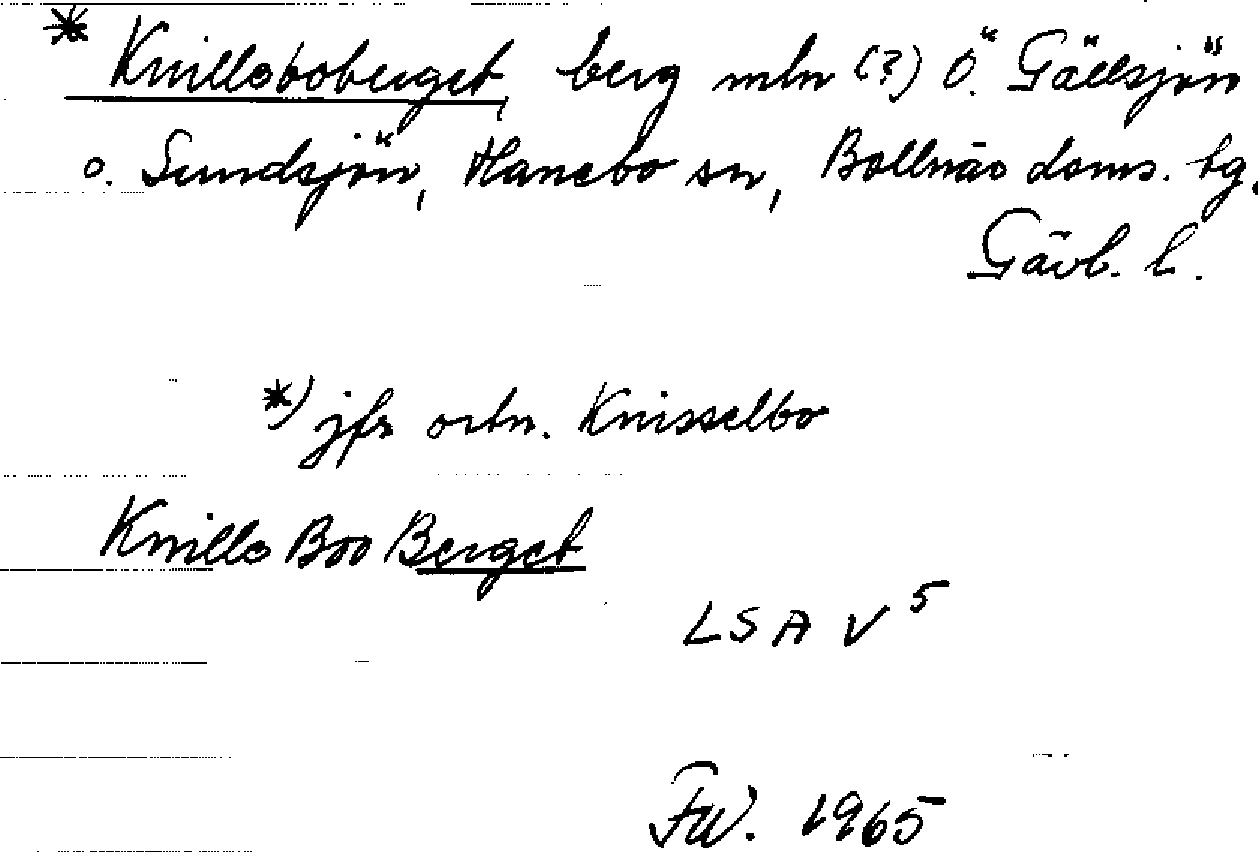 * Knillsboberget, berg mln (?) Ö. Gällsjön
o. Sundsjön, Hanebo sn, Bollnäs doms. tg.
Gävl. l.
*) jfr ortn. Knisselbo
Knills Boo Berget
LSA V5
FW. 1965